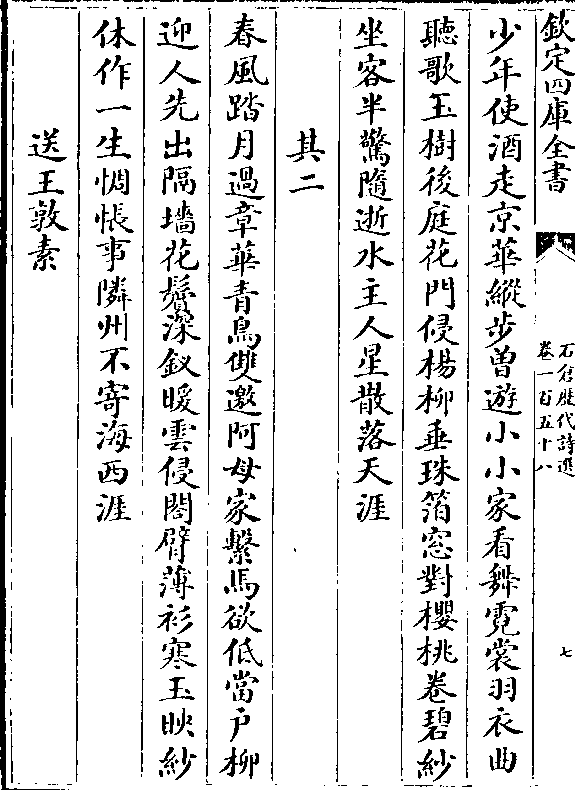 欽定四庫全書
石倉歷代詩選
卷一百五十八
七
少年使酒走京華縱步曾遊小小家看舞霓裳羽衣曲
聽歌玉樹後庭花門侵楊柳垂珠箔窓對櫻桃卷碧紗
坐客半驚隨逝水主人星散落天涯
其二
春風踏月過章華青鳥雙邀阿母家繫馬欲低當户柳
迎人先出隔墻花鬢深釵暖雲侵閤臂薄衫寒玉映紗
休作一生惆悵事隣州不寄海西涯
送王敦素